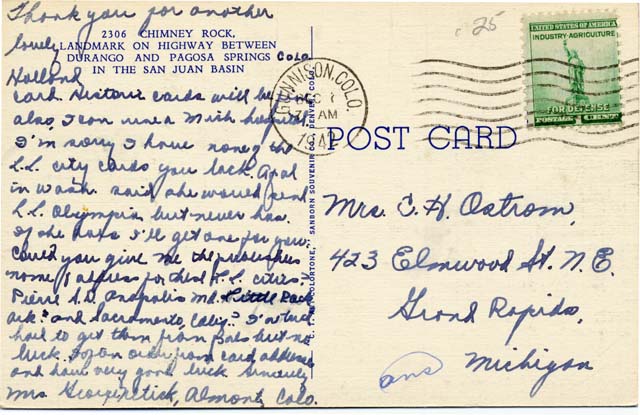 Thank you for another
lovely
2306 CHIMNEY ROCK,
LANDMARK ON HIGHWAY BETWEEN
DURANGO AND PAGOSA SPRINGS COLO.
IN THE SAN JUAN BASIN
Holland
card. Historic cards will be
also, I can use a Mich
I'm sorry I have none of the
L.L. city cards you lack. A pal
in Wash. said she would send
L.L. Olympia, but never has.
If she does I'll get one for you.
Could you give me the publishers
name & address for these L.L. cities.
Pierre S.D. Anapolis Md. Little Rock
Ark? and Sacramento, Calif? I've tried
hard to get them from pals but no
luck. I often order from card address
and have very good luck Sincerely
Mrs Almont, Colo.
SANBORN SOUVENIR CO., DENVER, COLO.
25
GUNNISON, COLO.
DEC
AM
1942
UNITED STATES OF AMERICA
INDUSTRY-AGRICULTURE
FOR DEFENSE
POSTAGE 1 CENT
POST CARD
Mrs. C. H. Ostrom,
423 Elmwood St. N.E.
Grand Rapids,
Michigan
ans